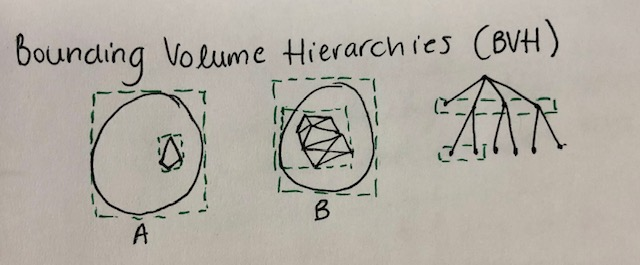 Bounding Volume Hierarchies (BVH)
A
B